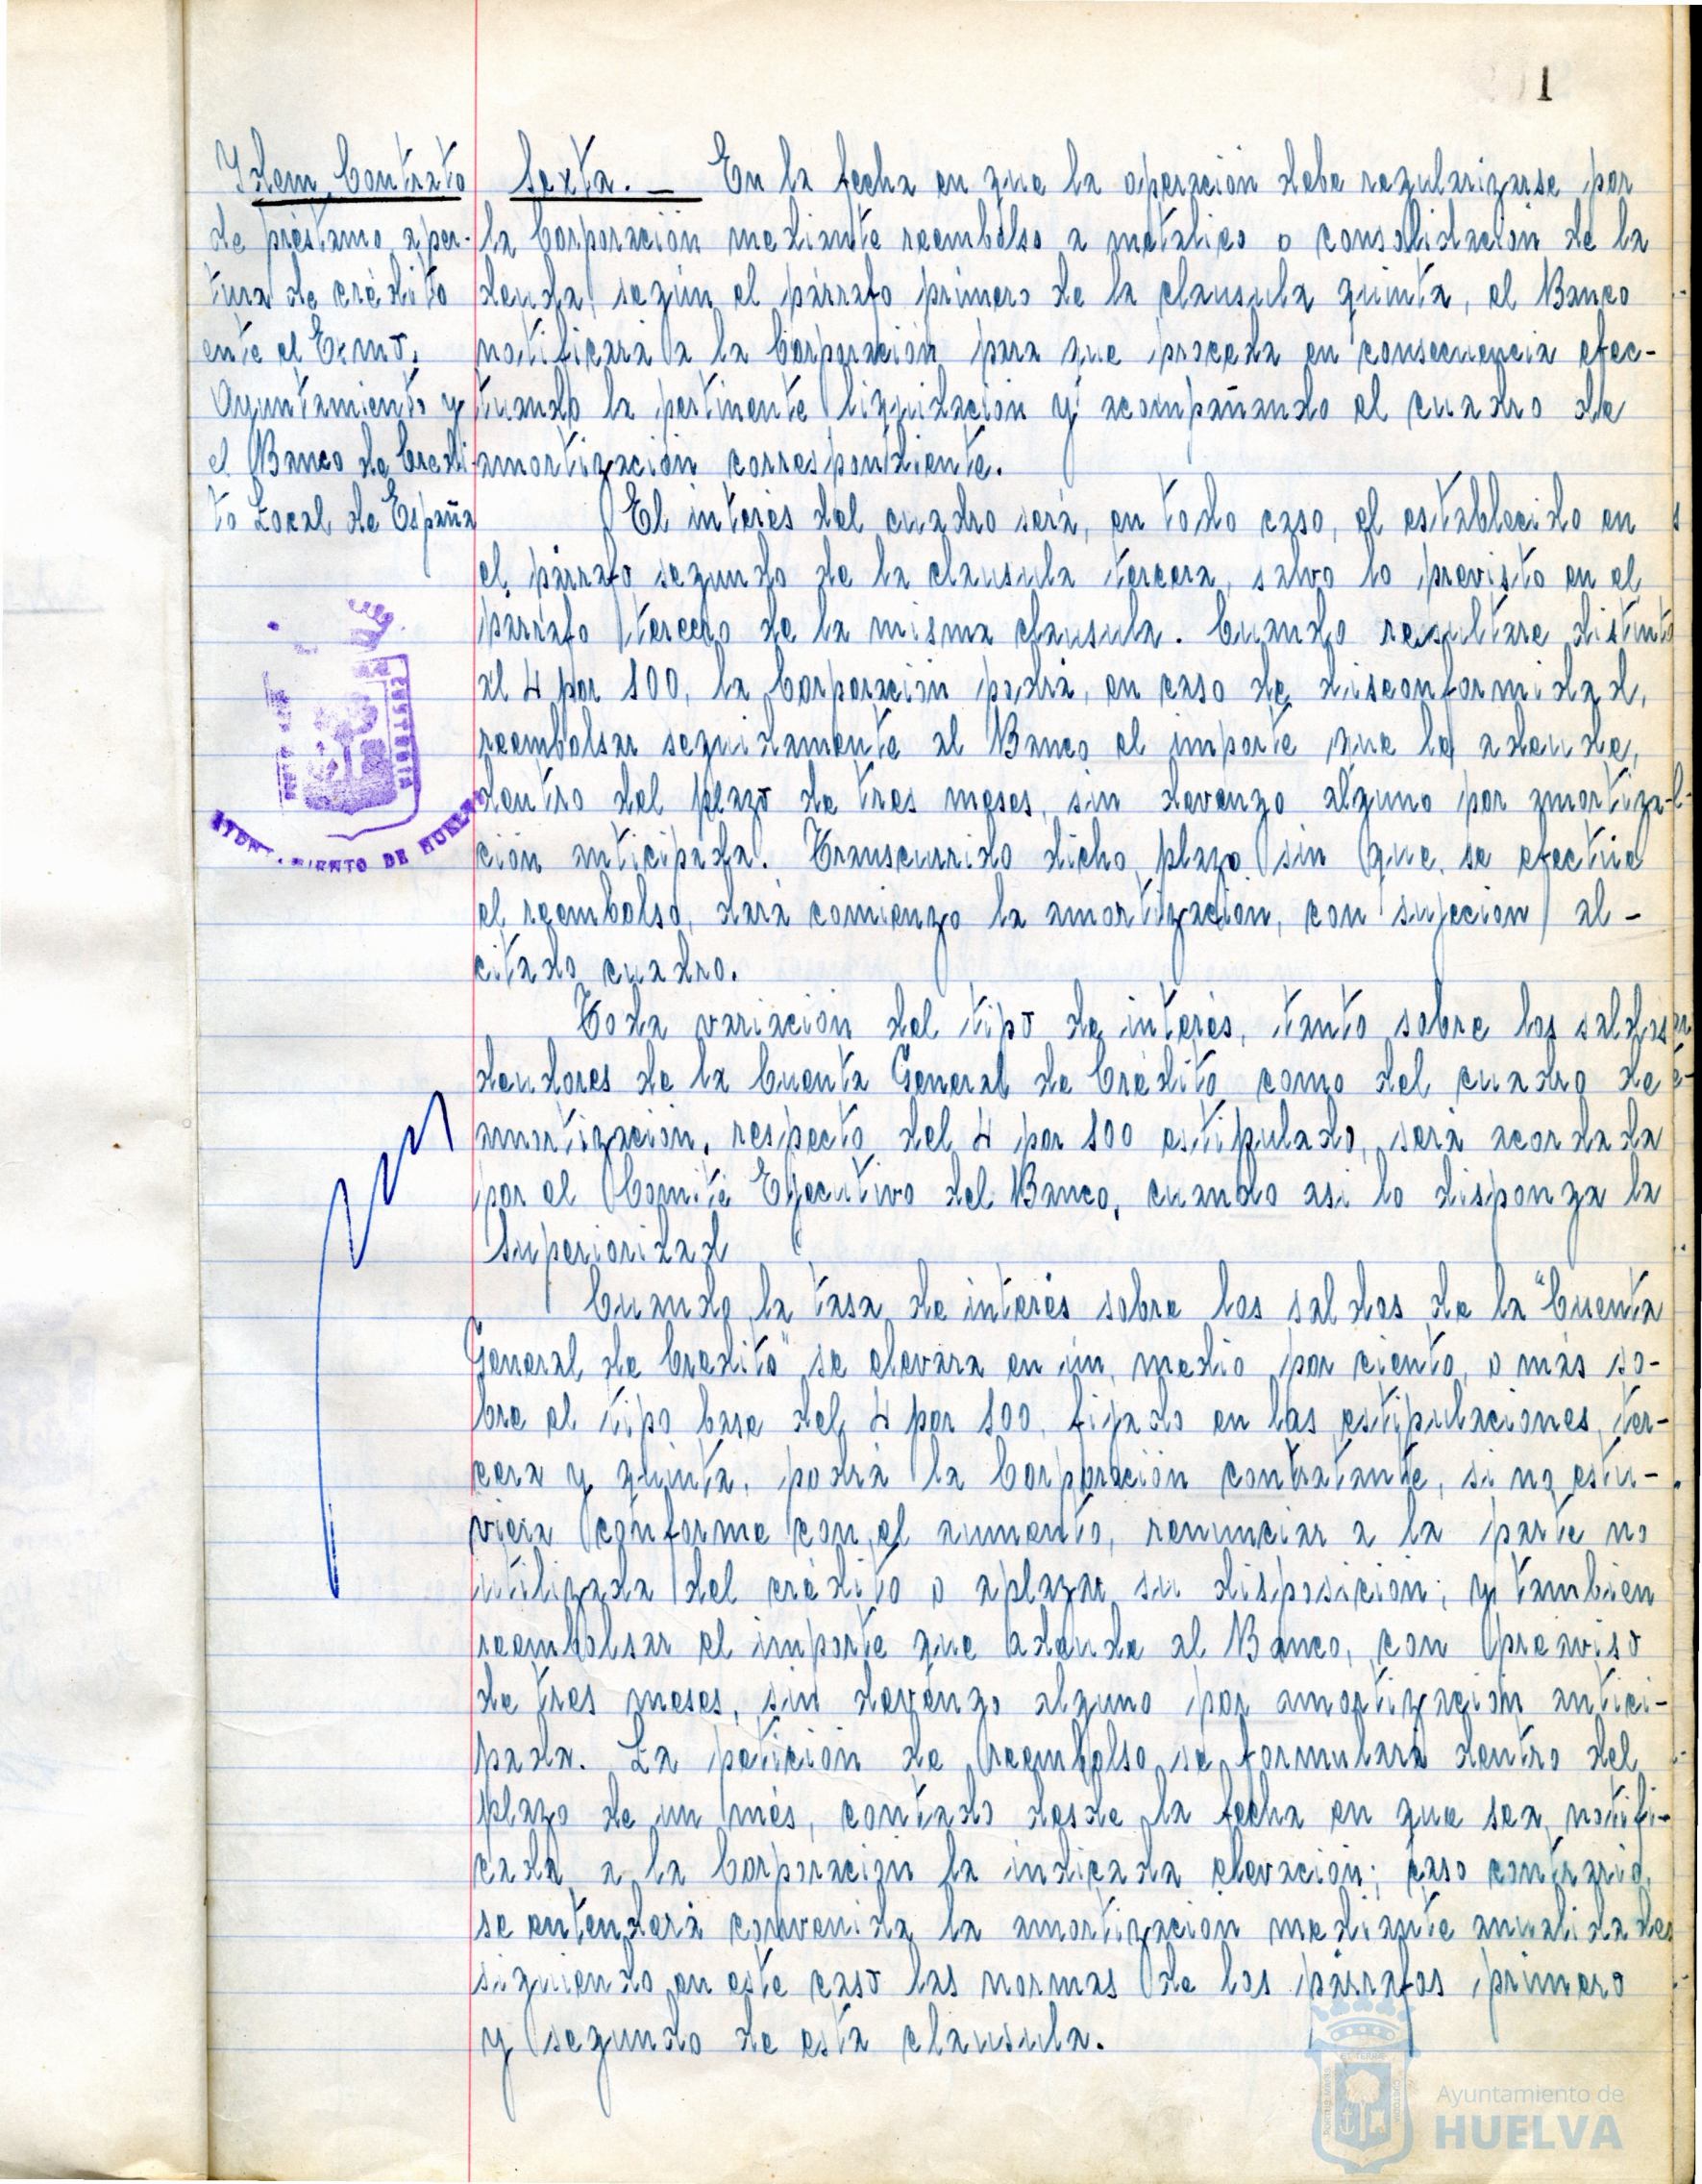 1
Idem Contrato
de préstamo, aper-
tura de crédito
ente el Excmo.
Ayuntamiento y
el Banco de Crédi-
to Local de España
AYUNTAMIENTO DE HUELVA
Sexta. — En la fecha en que la operación debe regularizarse por
la Corporación mediante reembolso a metálico o consolidación de la
deuda, según el párrafo primero de la clausula quinta, el Banco
notificará a la Corporación para que proceda en consecuencia efec-
tuando la pertinente liquidación y acompañando el cuadro de
amortización correspondiente.
El interés del cuadro será, en todo caso, el establecido en
el párrafo segundo de la clausula tercera, salvo lo previsto en el
párrafo tercero de la misma clausula. Cuando resultare distinto
al 4 por 100, la Corporación podrá, en caso de disconformidad,
reembolsar seguidamente al Banco el importe que le adeude,
dentro del plazo de tres meses, sin devengo alguno por amortiza-
ción anticipada. Transcurrido dicho plazo sin que se efectúe
el reembolso, dará comienzo la amortización, con sujeción al -
citado cuadro.
Toda variación del tipo de interés, tanto sobre los saldos
deudores de la Cuenta General de Crédito como del cuadro de
amortización, respecto del 4 por 100 estipulado, será acordada
por el Comité Ejecutivo del Banco, cuando asi lo disponga la
Superioridad
Cuando la tasa de interés sobre los saldos de la "Cuenta
General de Crédito" se elevara en un medio por ciento, o más so-
bre el tipo base del 4 por 100, fijado en las estipulaciones ter-
cera y quinta, podrá la Corporación contratante, si no estu-
viera conforme con el aumento, renunciar a la parte no
utilizada del crédito o aplazar su disposición; y también
reembolsar el importe que adeude al Banco, con preaviso
de tres meses, sin devengo alguno por amortización antici-
pada. La petición de reembolso se formulará dentro del
plazo de un més, contado desde la fecha en que sea notifi-
cada a la Corporación la indicada elevación; caso contrario,
se entenderá convenida la amortización mediante anualidades
siguiendo en este caso las normas de los párrafos primero
y segundo de esta clausula.
Ayuntamiento de
HUELVA